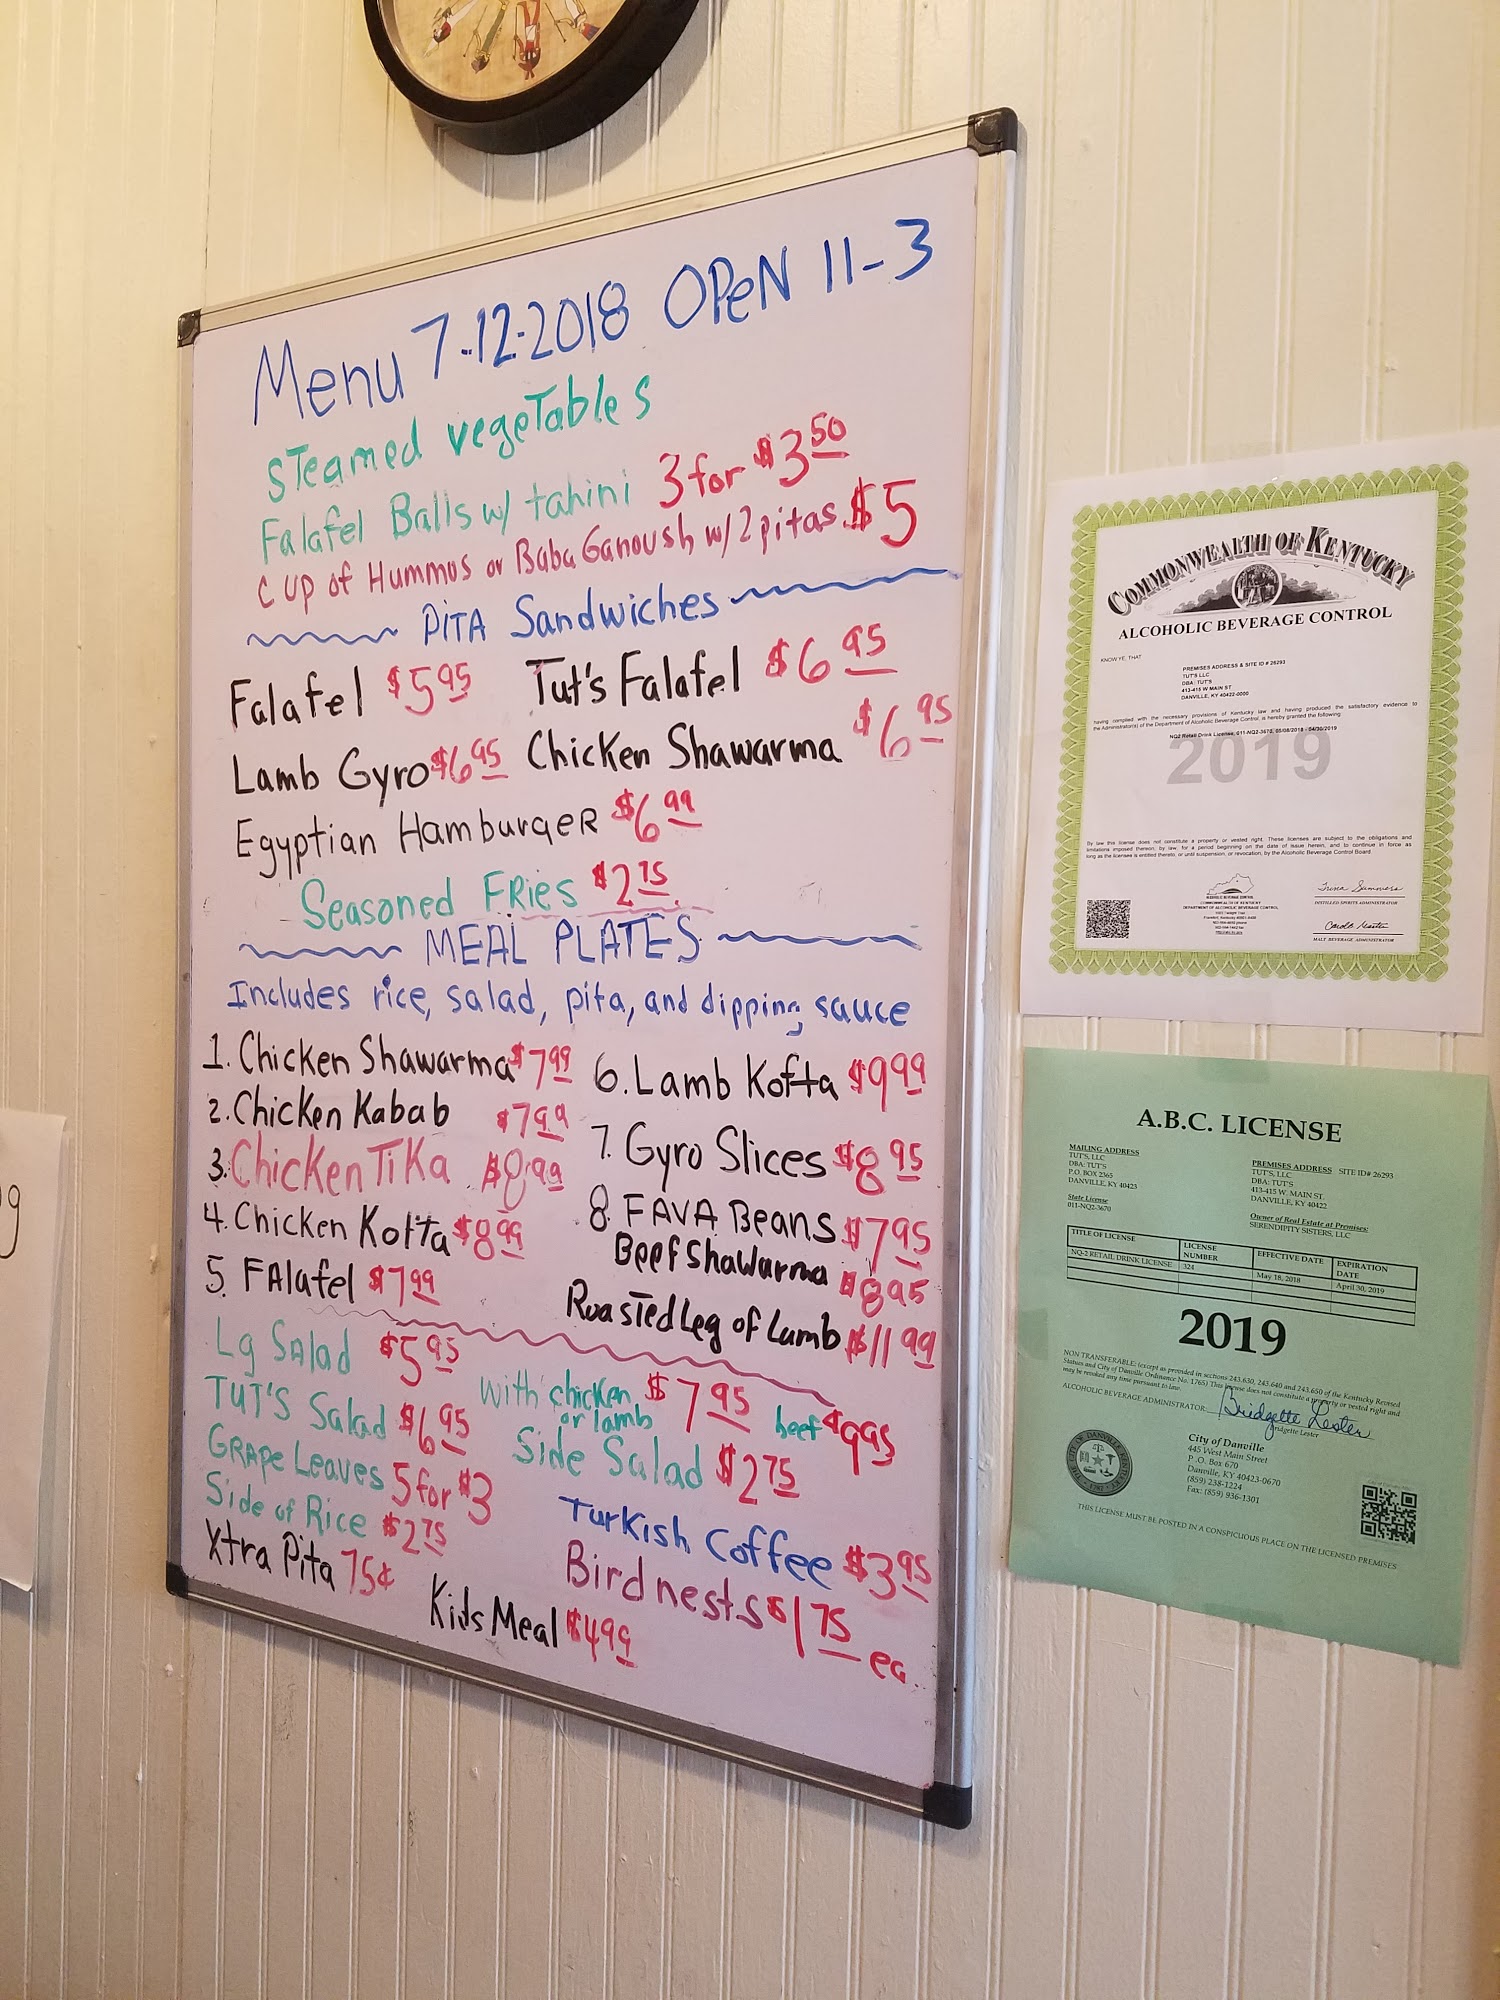 Menu 7-12-2018 OPeN 11-3
STeamed vegeTables
Falafel Balls w/ tahini 3 for $3.50
Cup of Hummus or Baba Ganoush w/ 2 pitas $5
PiTA Sandwiches
Falafel $5.95 Tut's Falafel $6.95
Lamb Gyro $6.95 Chicken Shawarma $6.95
Egyptian HamburgeR $6.99
Seasoned FRies $2.75
MEAL PLATES
Includes rice, salad, pita, and dipping sauce
1. Chicken Shawarma $7.99 6. Lamb Kofta $9.99
2. Chicken Kabab $7.99 7. Gyro Slices $8.95
3. Chicken Tika $8.99 8. FAVA Beans $7.95
4. Chicken Kofta $8.99 Beef Shawarma $8.95
5. FAlafel $7.99 Roasted Leg of Lamb $11.99
Lg SAlad $5.95
TUT'S Salad $6.95 with chicken or lamb $7.95 beef $9.95
GRApe Leaves 5 for $3 Side Salad $2.75
Side of Rice $2.75 Turkish Coffee $3.95
Xtra Pita 75¢ Bird nests $1.75 ea.
Kids Meal $4.99
COMMONWEALTH OF KENTUCKY
ALCOHOLIC BEVERAGE CONTROL
KNOW YE, THAT
PREMISES ADDRESS & SITE ID # 26293
TUT'S LLC
DBA: TUT'S
413-415 W MAIN ST
DANVILLE, KY 40422-0000
having complied with the necessary provisions of Kentucky law and having produced the satisfactory evidence to
the Administrator(s) of the Department of Alcoholic Beverage Control, is hereby granted the following
NQ2 Retail Drink License, 011-NQ2-3670, 05/08/2018 - 04/30/2019
2019
By law this license does not constitute a property or vested right. These licenses are subject to the obligations and
limitations imposed therein, by law, for a period beginning on the date of issue herein, and to continue in force as
long as the licensee is entitled thereto, or until suspension, or revocation, by the Alcoholic Beverage Control Board.
DEPARTMENT OF ALCOHOLIC BEVERAGE CONTROL
DISTILLED SPIRITS ADMINISTRATOR
MALT BEVERAGE ADMINISTRATOR
A.B.C. LICENSE
MAILING ADDRESS
TUT'S, LLC
DBA: TUT'S
P.O. BOX 2365
DANVILLE, KY 40423
State License
011-NQ2-3670
PREMISES ADDRESS SITE ID# 26293
TUT'S, LLC
DBA: TUT'S
413-415 W. MAIN ST.
DANVILLE, KY 40422
Owner of Real Estate at Premises:
SERENDIPITY SISTERS, LLC
TITLE OF LICENSE LICENSE NUMBER EFFECTIVE DATE EXPIRATION DATE
NQ-2 RETAIL DRINK LICENSE 324 May 18, 2018 April 30, 2019
2019
NON TRANSFERABLE: (except as provided in sections 243.630, 243.640 and 243.650 of the Kentucky Revised
Statues and City of Danville Ordinance No. 1765) This license does not constitute a property or vested right and
may be revoked any time pursuant to law.
ALCOHOLIC BEVERAGE ADMINISTRATOR Bridgette Lester
Bridgette Lester
City of Danville
445 West Main Street
P.O. Box 670
Danville, KY 40423-0670
(859) 238-1224
Fax: (859) 936-1301
THIS LICENSE MUST BE POSTED IN A CONSPICUOUS PLACE ON THE LICENSED PREMISES